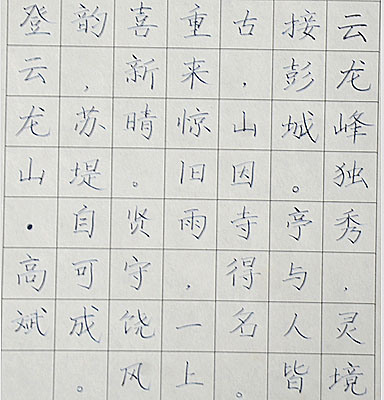 云龙峰独秀，灵境
接彭城。亭与人皆
古，山因寺得名。
重来惊旧雨，一上
喜新晴。贤守饶风
韵，苏堤自可成。
登云龙山·高斌